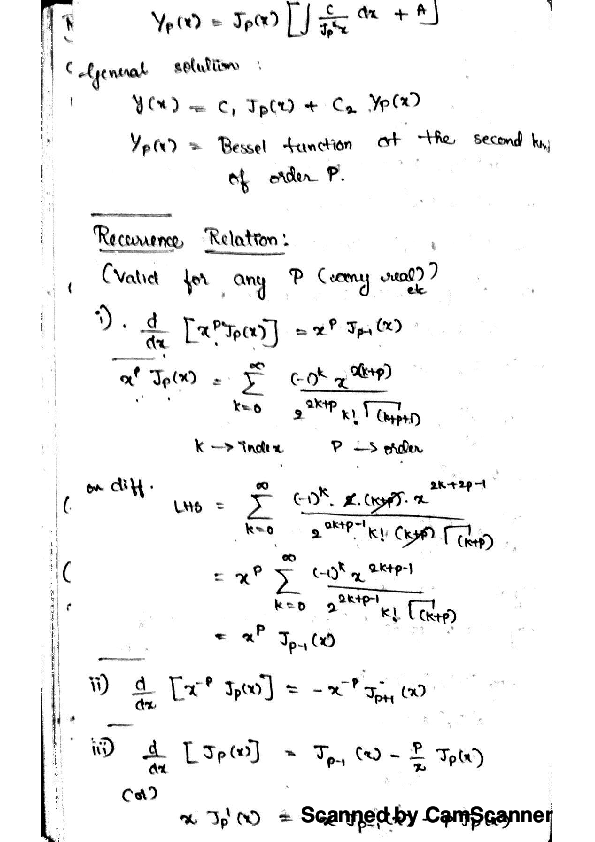 Yp(x) = Jp(x) [ ∫ C / Jp²x dx + A ]
General solution :
y(x) = C₁ Jp(x) + C₂ Yp(x)
Yp(x) = Bessel function of the second
of order P.
Recurrence Relation:
(Valid for any P ( real))
etc
i) . d/dx [x^p Jp(x)] = x^p Jp-1(x)
x^p Jp(x) = ∑_{k=0}^{∞} (-1)^k x^{2(k+p)} / 2^{2k+p} k! Γ(k+p+1)
k → index P → order
on diff. LHS = ∑_{k=0}^{∞} (-1)^k . 2.(k+p). x^{2k+2p-1} / 2^{2k+p-1} k! (k+p) Γ(k+p)
= x^p ∑_{k=0}^{∞} (-1)^k x^{2k+p-1} / 2^{2k+p-1} k! Γ(k+p)
= x^p Jp-1(x)
ii) d/dx [x^{-p} Jp(x)] = -x^{-p} Jp+1(x)
iii) d/dx [Jp(x)] = Jp-1(x) - p/x Jp(x)
(or)
x Jp'(x) =
Scanned by CamScanner